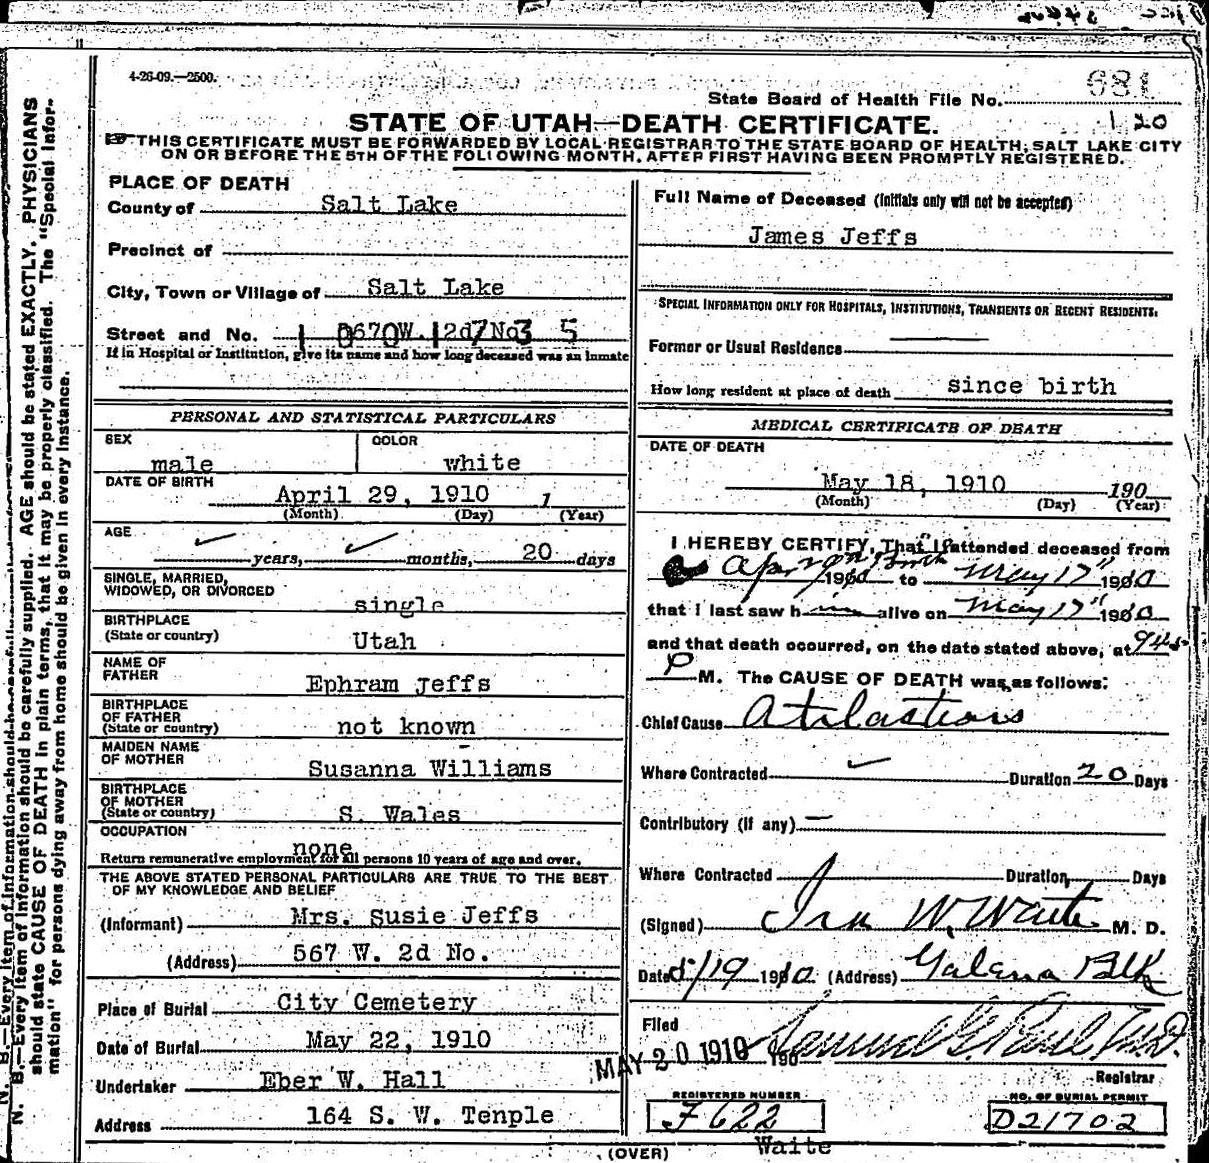 4-26-09.—2500.
681
State Board of Health File No.
STATE OF UTAH—DEATH CERTIFICATE.
1 20
THIS CERTIFICATE MUST BE FORWARDED BY LOCAL REGISTRAR TO THE STATE BOARD OF HEALTH, SALT LAKE CITY
ON OR BEFORE THE 5TH OF THE FOLLOWING MONTH, AFTER FIRST HAVING BEEN PROMPTLY REGISTERED.
PLACE OF DEATH
County of Salt Lake
Precinct of
City, Town or Village of Salt Lake
Street and No. 670 W. 2d No
If in Hospital or Institution, give its name and how long deceased was an inmate
Full Name of Deceased (Initials only will not be accepted)
James Jeffs
SPECIAL INFORMATION ONLY FOR HOSPITALS, INSTITUTIONS, TRANSIENTS OR RECENT RESIDENTS:
Former or Usual Residence
How long resident at place of death since birth
PERSONAL AND STATISTICAL PARTICULARS
SEX male COLOR white
DATE OF BIRTH
April 29, 1910 1
(Month) (Day) (Year)
AGE
years, months, 20 days
SINGLE, MARRIED,
WIDOWED, OR DIVORCED
single
BIRTHPLACE
(State or country) Utah
NAME OF
FATHER Ephram Jeffs
BIRTHPLACE
OF FATHER
(State or country) not known
MAIDEN NAME
OF MOTHER Susanna Williams
BIRTHPLACE
OF MOTHER
(State or country) S. Wales
OCCUPATION
none
Return remunerative employment for all persons 10 years of age and over.
THE ABOVE STATED PERSONAL PARTICULARS ARE TRUE TO THE BEST
OF MY KNOWLEDGE AND BELIEF
(Informant) Mrs. Susie Jeffs
(Address) 567 W. 2d No.
Place of Burial City Cemetery
Date of Burial May 22, 1910
Undertaker Eber W. Hall
Address 164 S. W. Tenple
MEDICAL CERTIFICATE OF DEATH
DATE OF DEATH
May 18, 1910 190
(Month) (Day) (Year)
I HEREBY CERTIFY, That I attended deceased from
Birth 1910 to May 17" 1910
that I last saw him alive on May 17" 1910
and that death occurred, on the date stated above, at 945
P M. The CAUSE OF DEATH was as follows:
Chief Cause Atilactious
Where Contracted Duration 20 Days
Contributory (if any) —
Where Contracted Duration Days
(Signed) Ira W. Waite M. D.
Date 5/19 1910 (Address) Galena Blk
Filed
MAY 20 1910 190 Samuel G. Paul M.D.
Registrar
REGISTERED NUMBER
F 622
NO. OF BURIAL PERMIT
D21702
Waite
(OVER)
N. B.—Every item of information should be carefully supplied. AGE should be stated EXACTLY. PHYSICIANS
should state CAUSE OF DEATH in plain terms, that it may be properly classified. The "Special Infor-
mation" for persons dying away from home should be given in every instance.